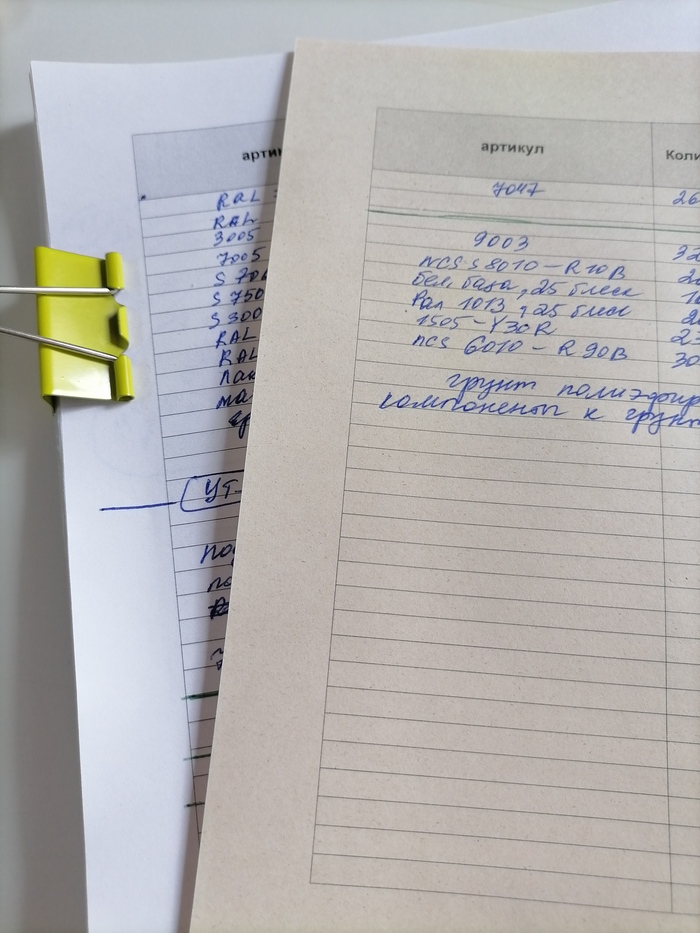 RAL
RAL
3005
7005
S 70
S 750
S 300
RAL
RAL
Лак
ма
УТ
по
артикул
7047
26
9003
32
NCS S 8010 - R 10B
бел база, 25 блеск
Рал 1013, 25 блеск
1505 - Y30R
23
ncs 6010 - R 90B
30
грунт полиэфир
компоненты к грунт